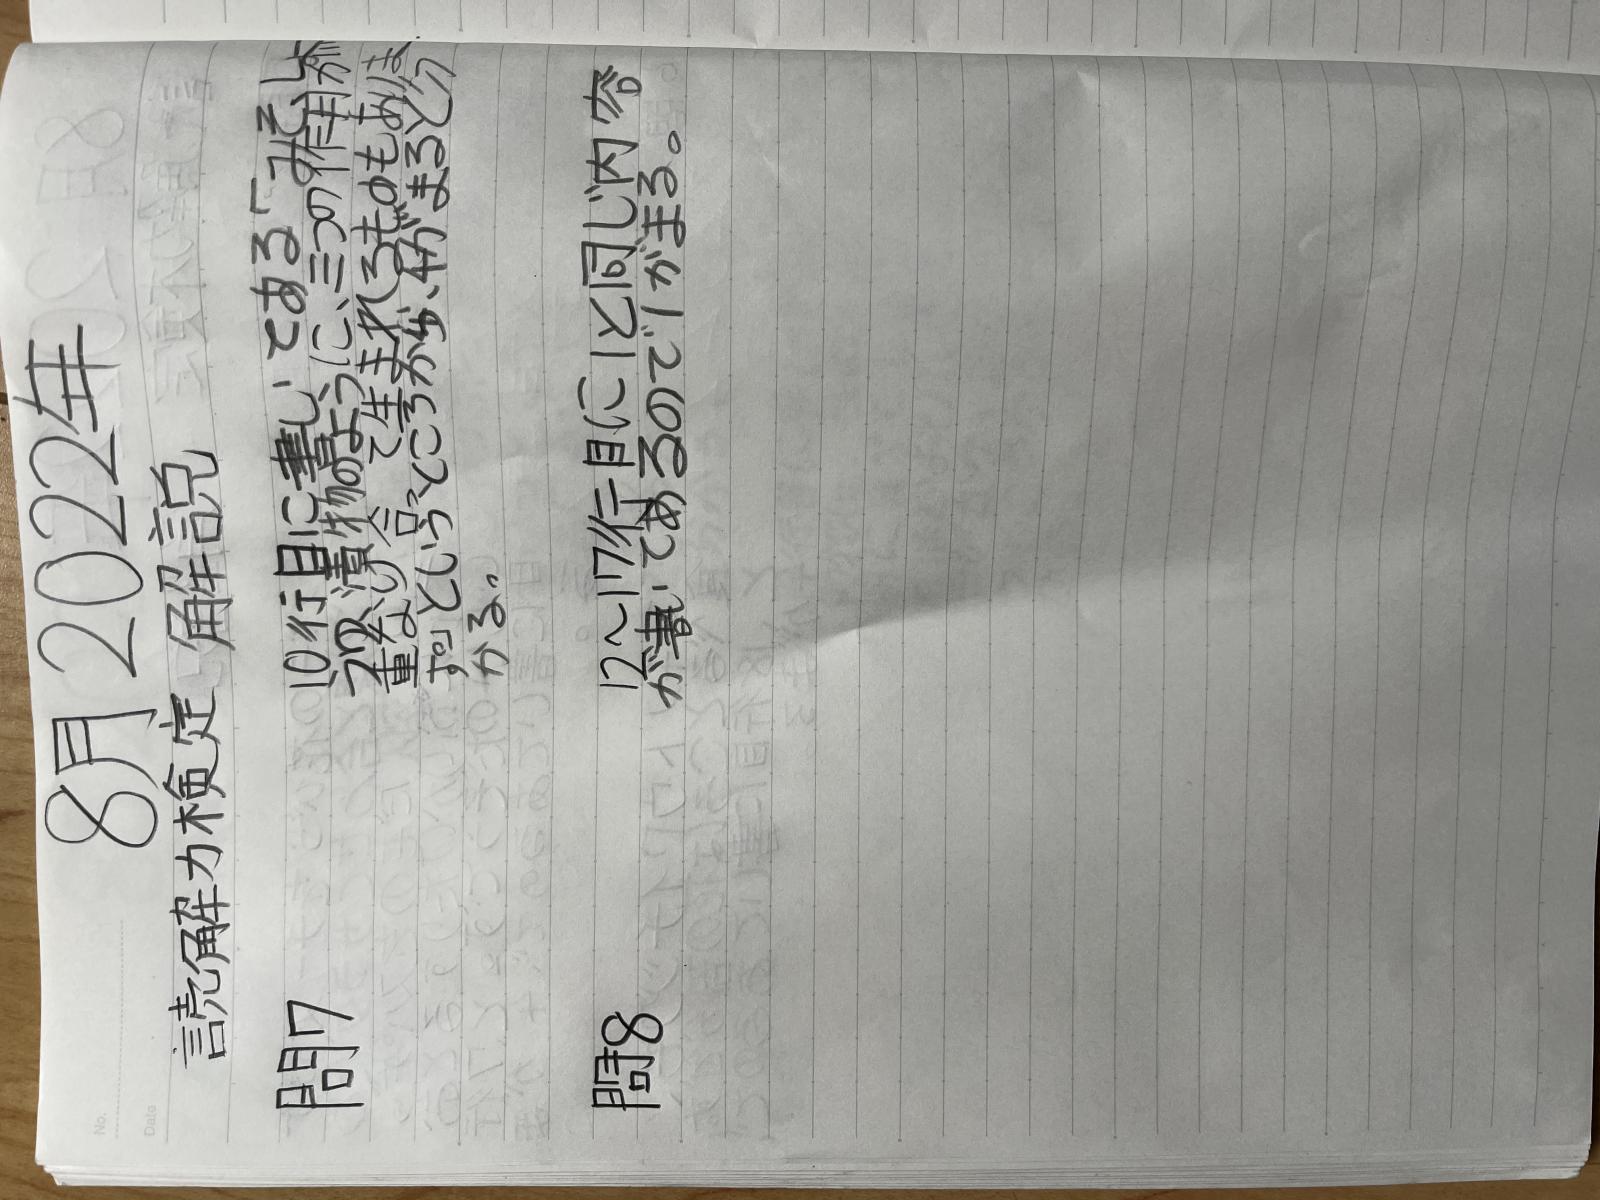 No.
Date
8月2022年
読解力検定 解説
問7
10行目に書いてある「みそし
る、漬物のように、三つの作用が
重なり合って生まれるものもありま
す。」というところから、4があてはまると分
かる。
問8
12〜17行目に1と同じ内容
が書いてあるので1があてはまる。